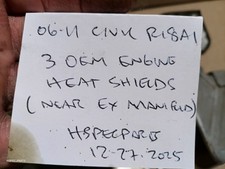 06-11 CIVIC R18A1
3 OEM ENGINE
HEAT SHIELDS
(NEAR EX MANIFOLD)
HSPECPORE
12-27-2025